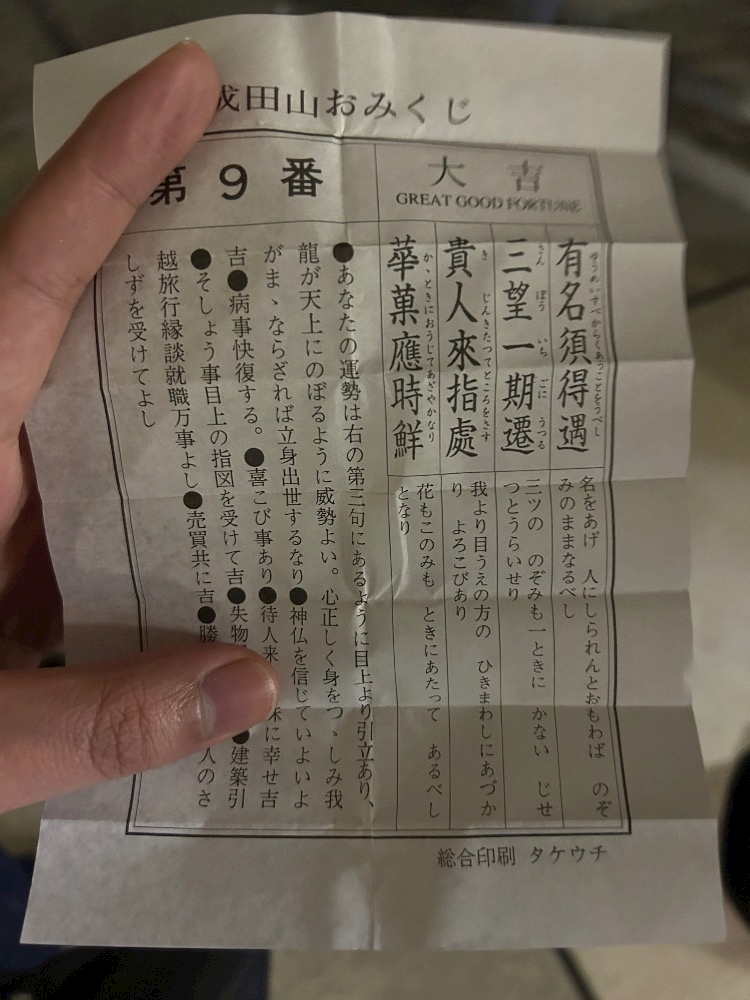 成田山おみくじ
第9番
大吉
GREAT GOOD FORTUNE
有名須得遇
三望一期遷
貴人來指處
華菓應時鮮
さん ぼう いち ごに うつる
き じんきたつてところをさす
か、ときにおうじてあざやかなり
名をあげ 人にしられんとおもわば のぞ
みのままなるべし
三ツの のぞみも一ときに かない じせ
つとうらいせり
我より目うえの方の ひきまわしにあづか
り よろこびあり
花もこのみも ときにあたって あるべし
となり
●あなたの運勢は右の第三句にあるように目上より引立あり、
龍が天上にのぼるように威勢よい。心正しく身をつゝしみ我
がまゝならざれば立身出世するなり●神仏を信じていよいよ
吉●病事快復する。●喜こび事あり●待人来 に幸せ吉
●そしょう事目上の指図を受けて吉●失物 ●建築引
越旅行縁談就職万事よし●売買共に吉●勝 人のさ
しずを受けてよし
総合印刷 タケウチ